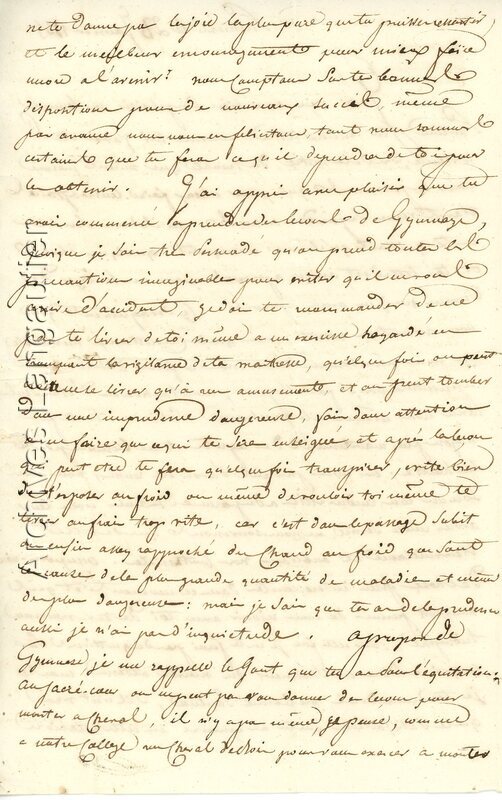 ne te donne pas la joie la plus pure que tu puisse ressentir,
et le meilleur encouragement pour mieux faire
encore a l'avenir? nous comptons sur tes bonnes
dispositions pour de nouveaux succès, même
par avance nous nous en félicitons, tant nous sommes
certains que tu feras ce qu'il dependra de toi pour
les obtenir. J'ai appris avec plaisir que tu
avais commencé a prendre des leçons de Gymnase,
quoique je sois très persuadé qu'on prend toutes les
precautions imaginables pour eviter qu'il ne vous
arrive d'accident, je dois te recommander de ne
pas te livrer de toi même a un exercice hazardé en
trompant la vigilance de ta maitresse, quelque fois on peut
ne se livrer qu'à un amusement, et on peut tomber
dans une imprudence dangereuse, fais donc attention
de ne faire que ce qui te sera enseigné, et après la leçon
qui peut etre te fera quelque fois transpirer, evite bien
de t'exposer au froid ou même de vouloir toi même te
tenir au frais trop vite, car c'est dans le passage subit
ou enfin assez rapproché du chaud au froid que sont
les causes de la plus grande quantité de maladies et même
des plus dangereuses: mais je sais que tu as de la prudence
aussi je n'ai pas d'inquietude. A propos de
Gymnase je me rappelle le gout que tu as pour l'équitation:
au sacré-cœur on ne peut pas vous donner de leçons pour
monter a cheval, il n'y a pas même, je pense, comme
a notre College un cheval de bois pour vous exercer a monter
Archives_Langautier